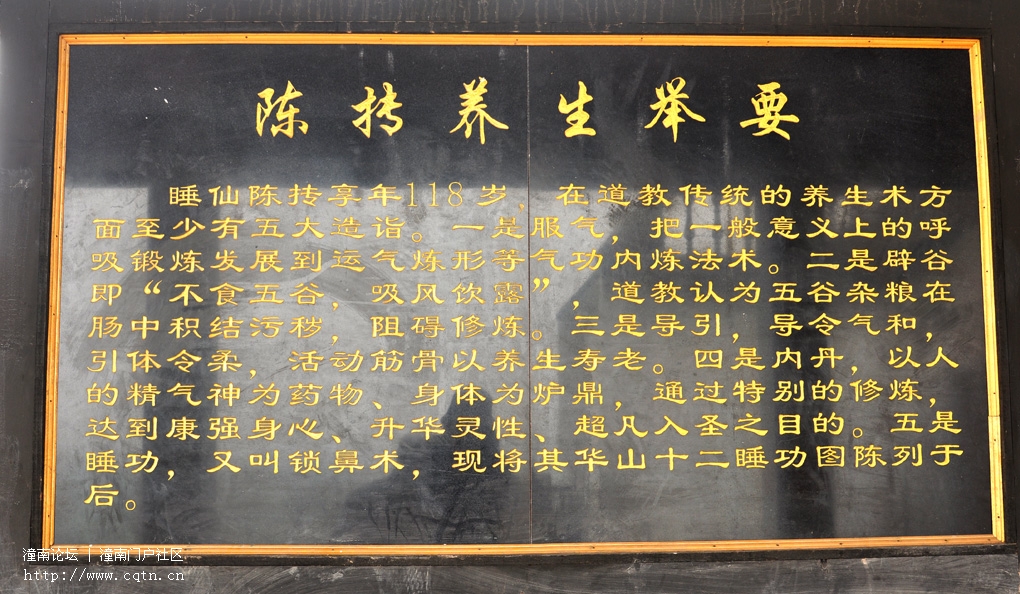 陈抟养生举要
睡仙陈抟享年118岁，在道教传统的养生术方
面至少有五大造诣。一是服气，把一般意义上的呼
吸锻炼发展到运气炼形等气功内炼法术。二是辟谷
即“不食五谷，吸风饮露”，道教认为五谷杂粮在
肠中积结污秽，阻碍修炼。三是导引，导令气和，
引体令柔，活动筋骨以养生寿老。四是内丹，以人
的精气神为药物、身体为炉鼎，通过特别的修炼，
达到康强身心、升华灵性、超凡入圣之目的。五是
睡功，又叫锁鼻术，现将其华山十二睡功图陈列于
后。
潼南论坛 | 潼南门户社区
http://www.cqtn.cn